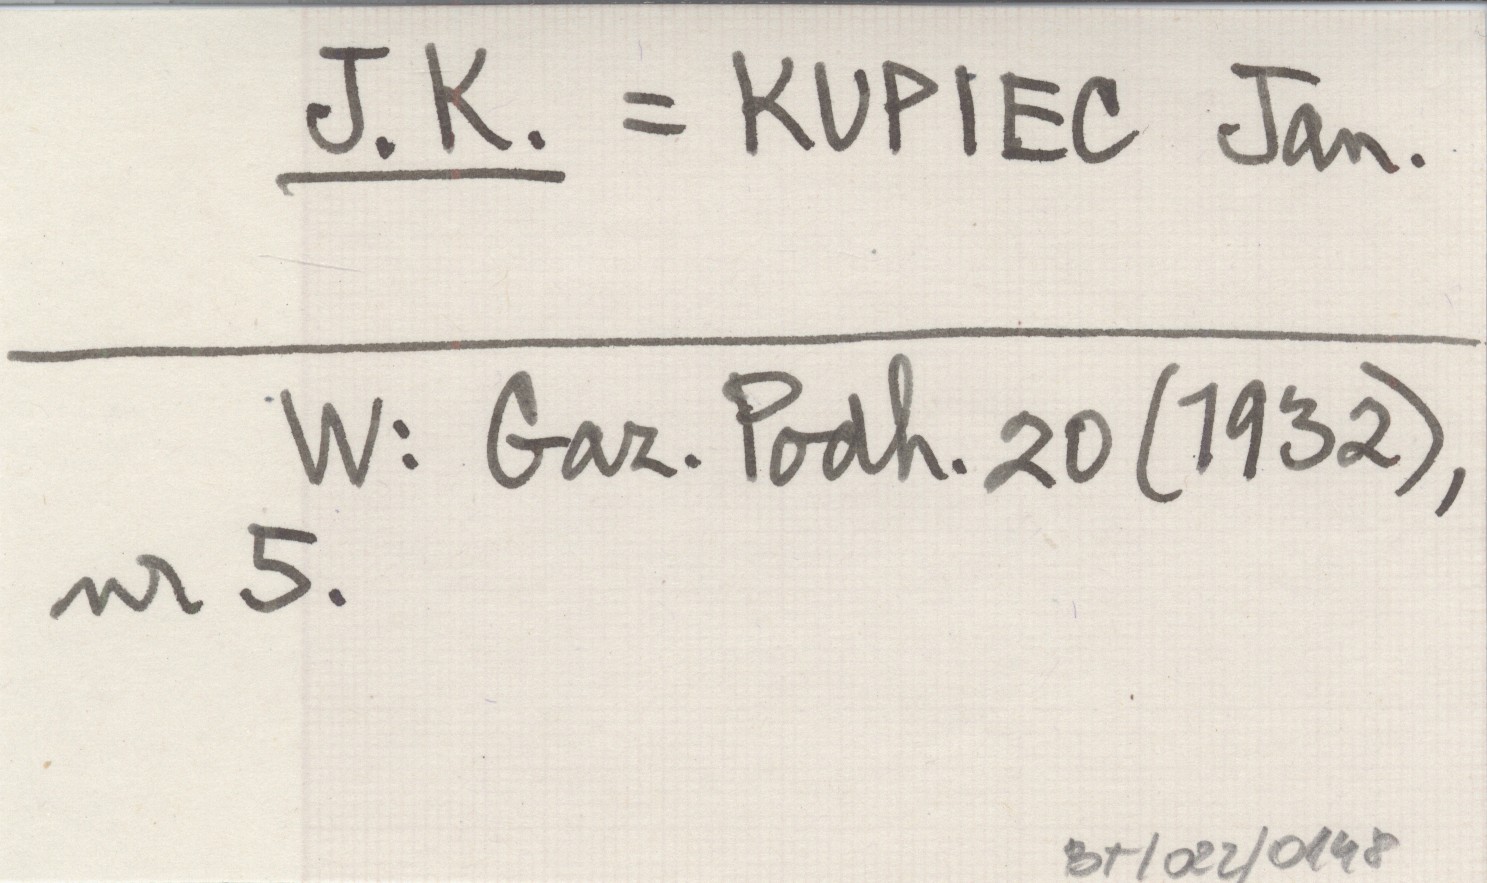 J.K. = KUPIEC Jan.
W: Gaz. Podh. 20 (1932),
nr 5.
BT/022/0148